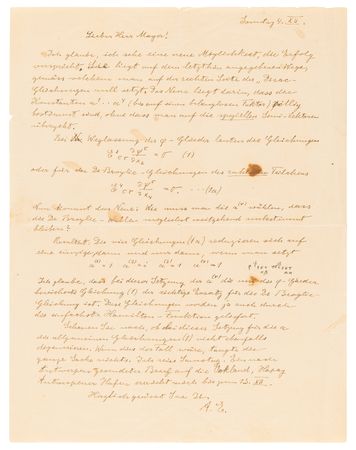 Sonntag 4. XII.
Lieber Herr Mayer!
Ich glaube, ich sehe eine neue Möglichkeit, die Erfolg
verspricht. Sie liegt auf dem letzthin angegebenen Wege,
gemäss welchem man auf der rechten Seite der "Dirac-
Gleichungen null setzt. Das Neue liegt darin, dass die
Konstanten völlig
bestimmt sind, ohne dass man auf die speziellen Semi-Vektoren
Bei Weglassung der φ-Glieder lauten die Gleichungen
= 0 (1)
oder für die De Broglie-Gleichungen des ruhenden Teilchens
= 0. ...(1a)
Nun kommt das Neue: Wie muss man die wählen, dass
die De Broglie-Wellen möglichst weitgehend unbestimmt
bleiben?
Resultat. Die vier Gleichungen (1a) reduzieren sich auf
eine einzige dann und nur dann, wenn man setzt
Ich glaube, dass bei dieser Setzung der α die
(1) der richtige Ersatz für die De Broglie-
Gleichung ist. Die Gleichungen werden ja auch durch
die einfachste Hamilton-Funktion geliefert.
Schauen Sie nach, ob bei dieser Setzung für die α
die allgemeinen Gleichungen (1) nicht ebenfalls
degenerieren. Wenn dies der Fall wäre, taugte die
ganze Sache nichts. Ich reise Samstag. Ein nach
Antwerpen gesandter Brief auf die Oakland, Hapag
Antwerpener Hafen erreicht mich bis zum 12. XII.
Herzlich grüsst Sie Ihr
A. E.